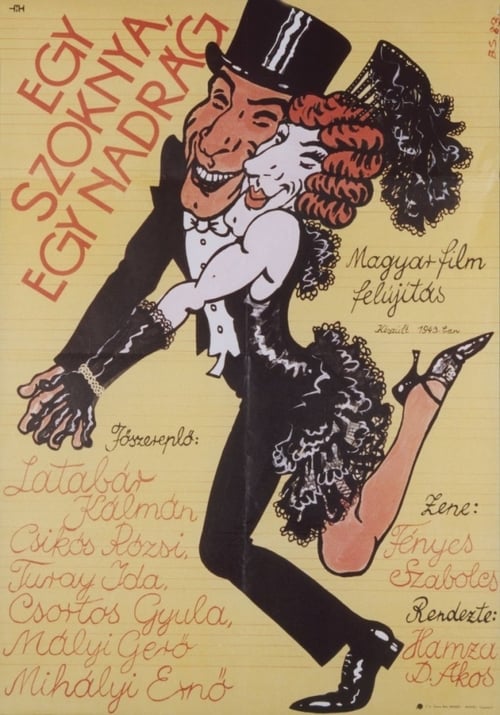 EGY
SZOKNYA,
EGY NADRÁG
Magyar film
felújítás
Készült 1943.-ban
Főszereplő:
Latabár
Kálmán
Csikós Rózsi,
Turay Ida,
Csortos Gyula,
Mályi Gerő
Mihályi Ernő
Zene:
Fényes
Szabolcs
Rendezte:
Hamza
D. Ákos